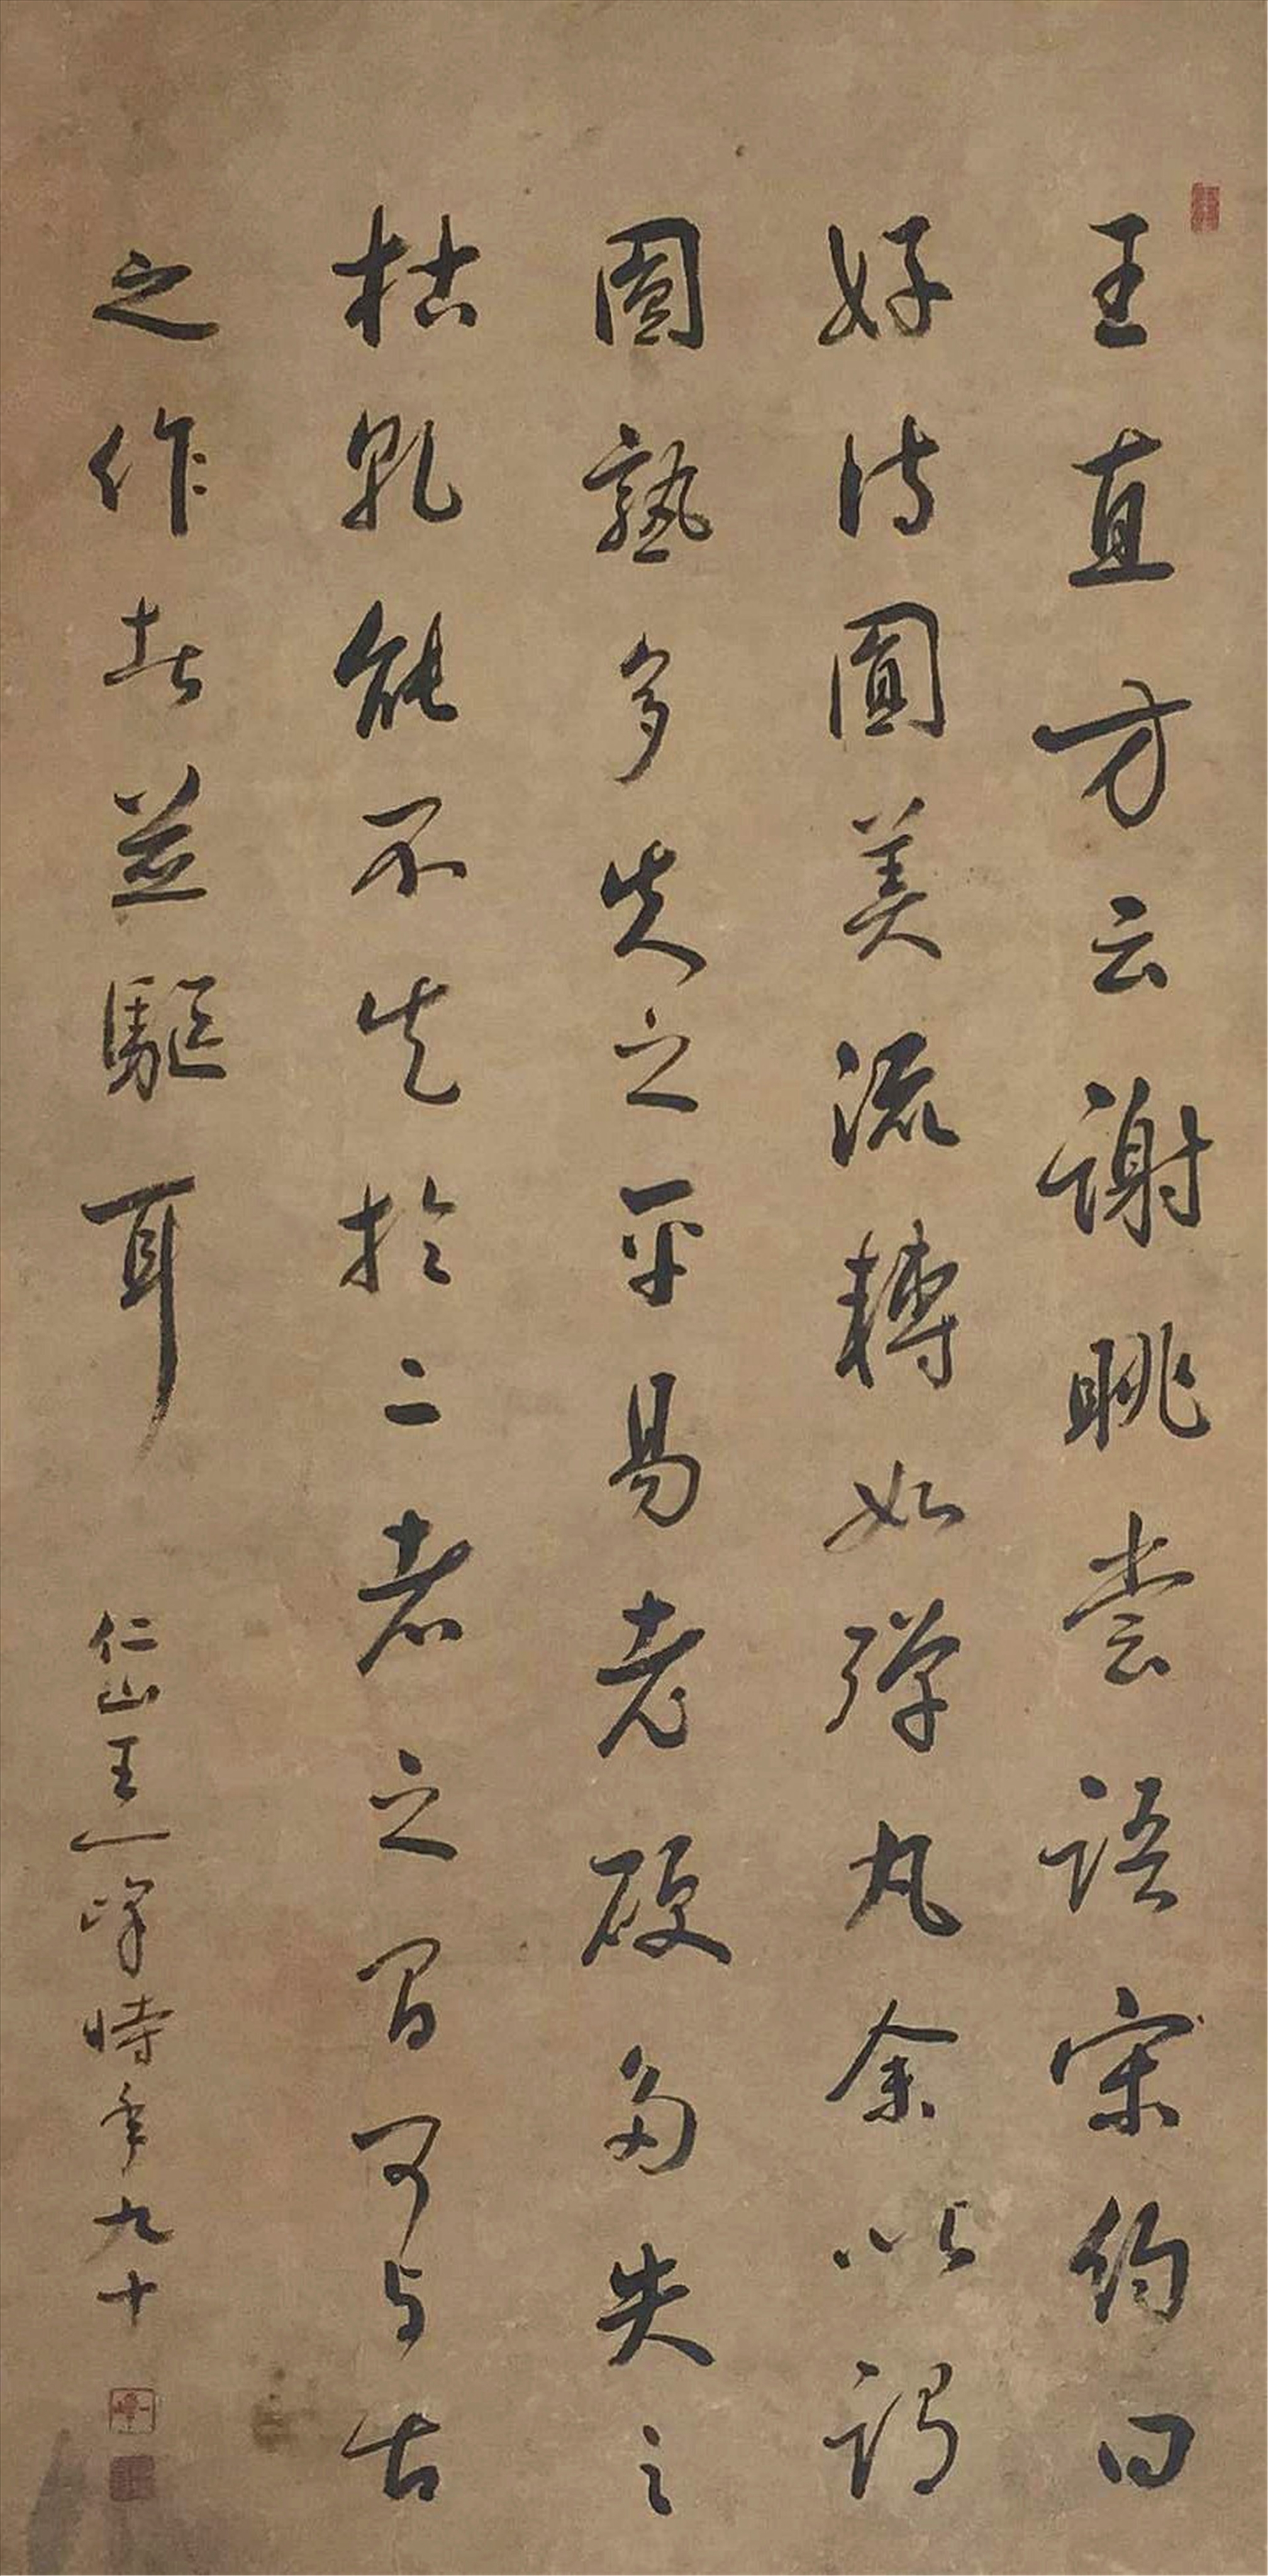 王直方云謝眺嘗語宋約曰
好詩圓美流轉如彈丸余以謂
圓熟多失之平易老硬多失之
枯乾能不失於二者之間可與古
之作者並驅耳
仁山王一峰時年九十